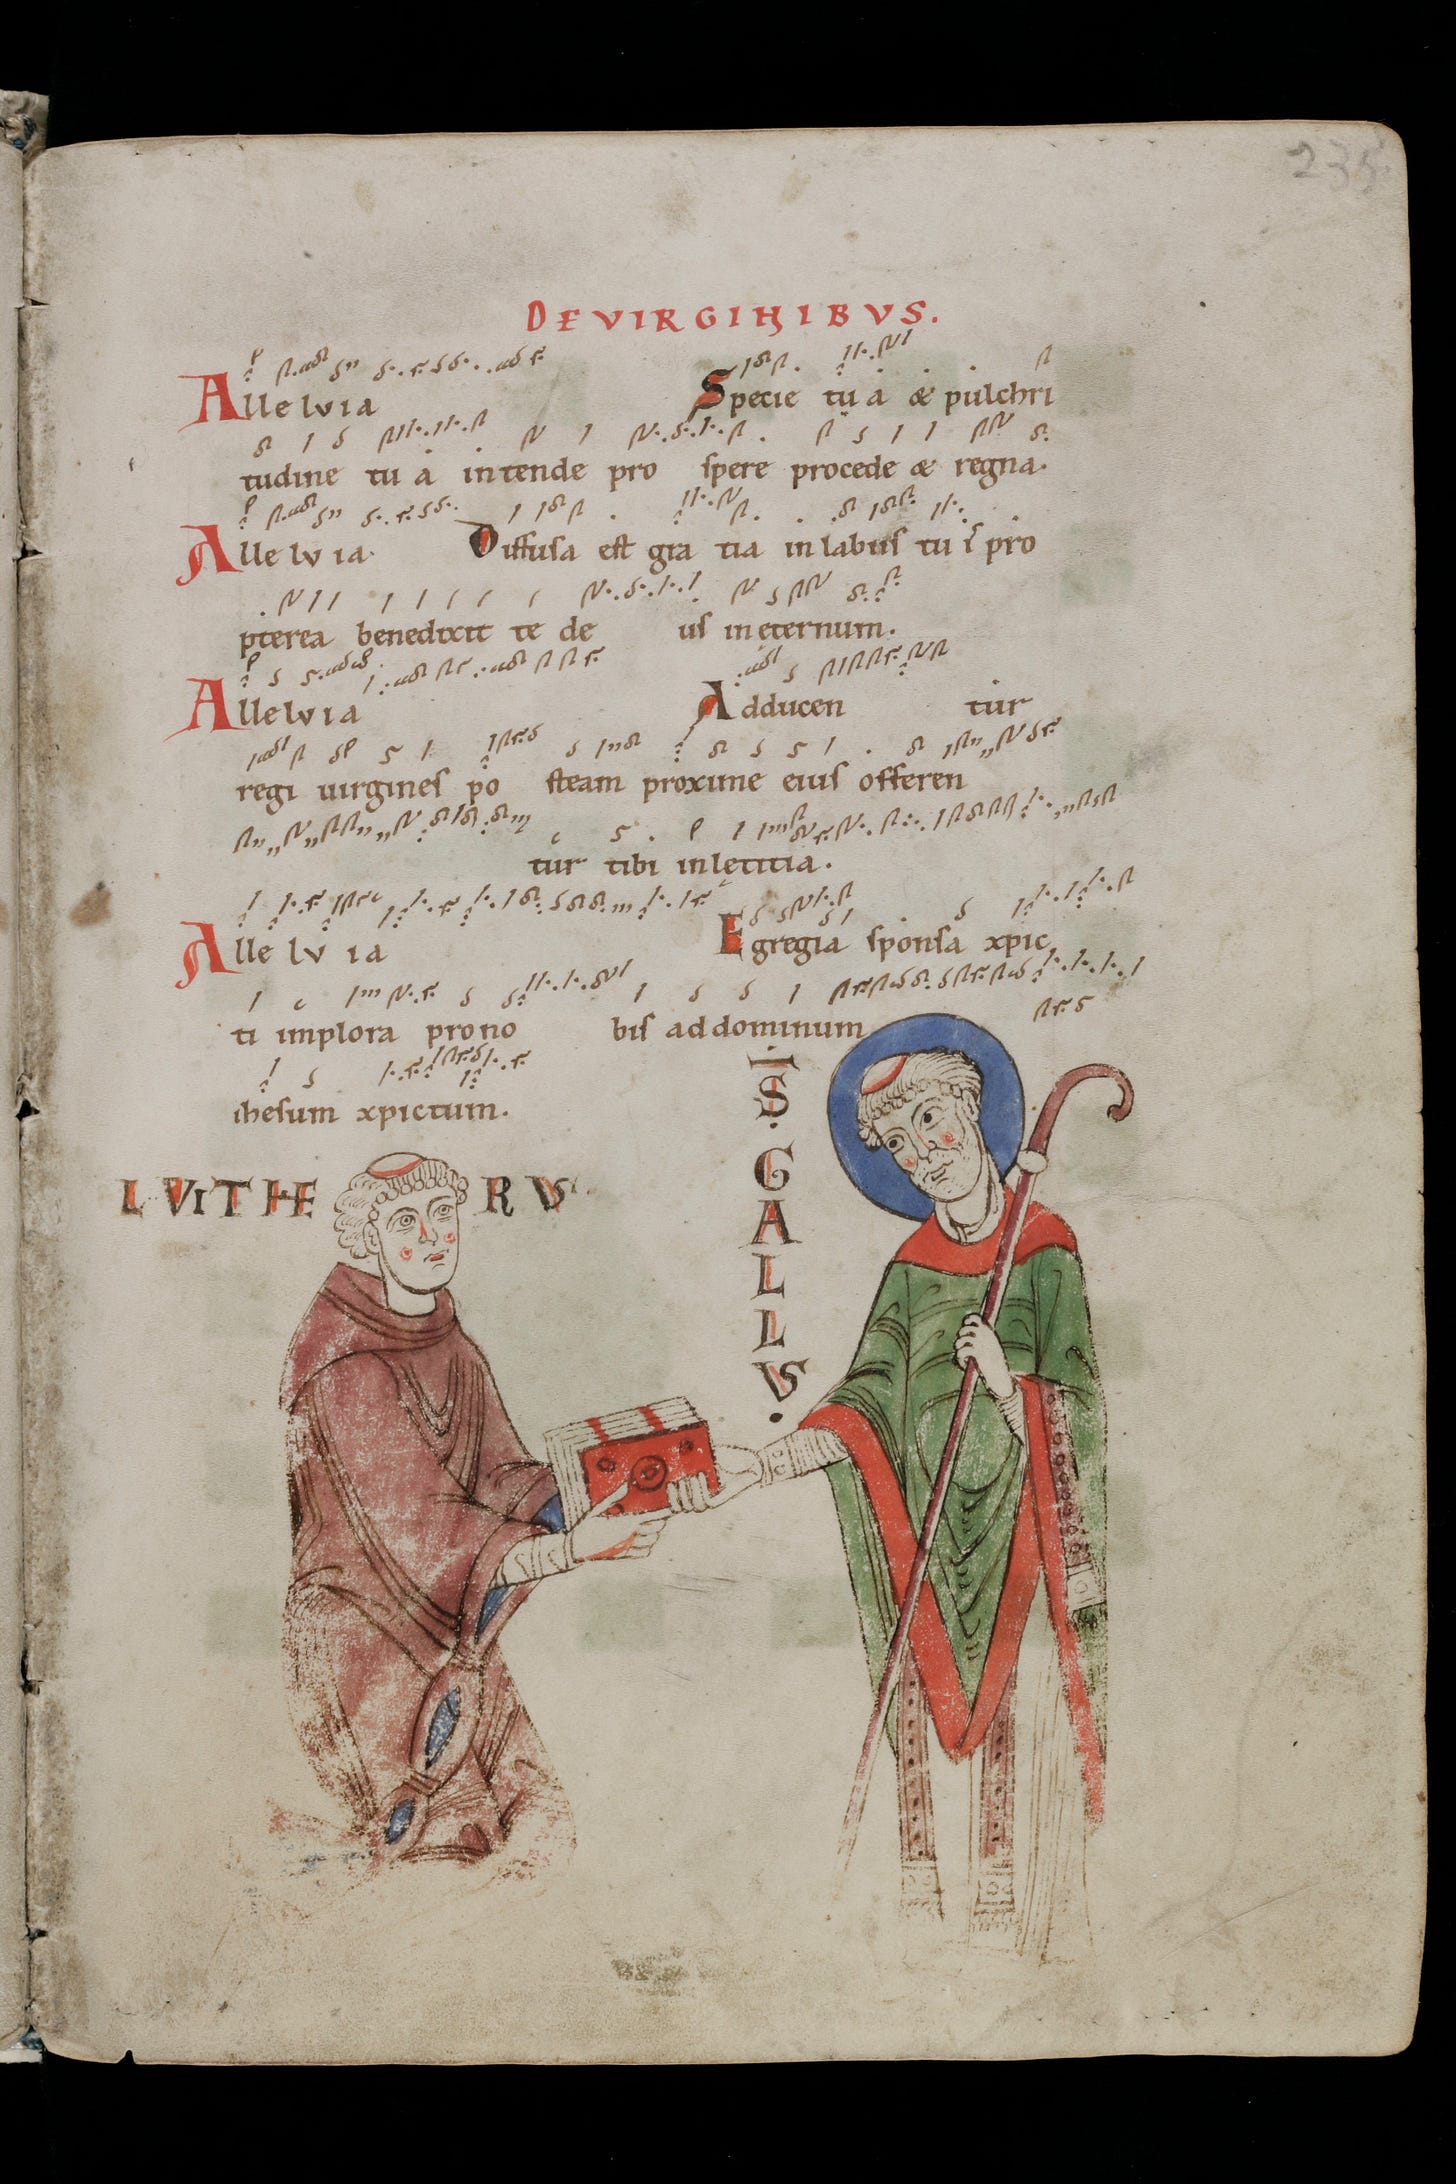 235
DE VIRGINIBVS.
Allelvia Specie tua & pulchri
tudine tua intende pro spere procede & regna.
Allelvia. Diffusa est gra tia in labiis tui pro
pterea benedixit te de us in eternum.
Allelvia Adducen tur
regi uirgines po steam proxime eius offeren
tur tibi in lętitia.
Allelvia Egregia sponsa xpic
ti implora pro no bis ad dominum
ihesum xpictum.
LVITHERVS
.S. GALLVS.